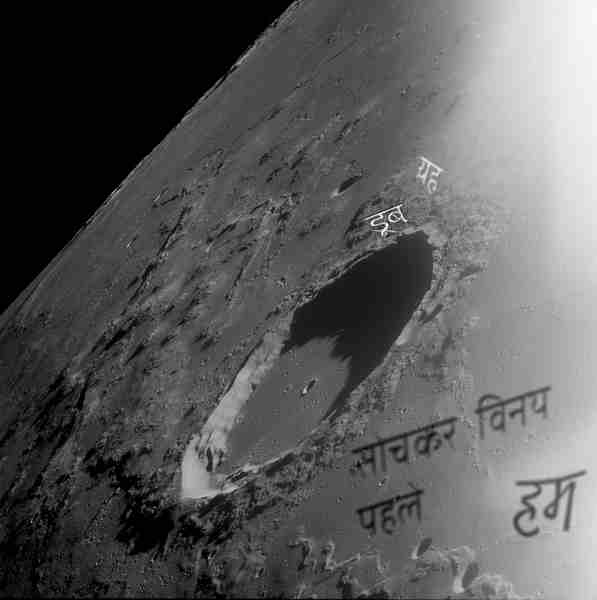 यह
डूब
सोचकर विनय
पहले हम